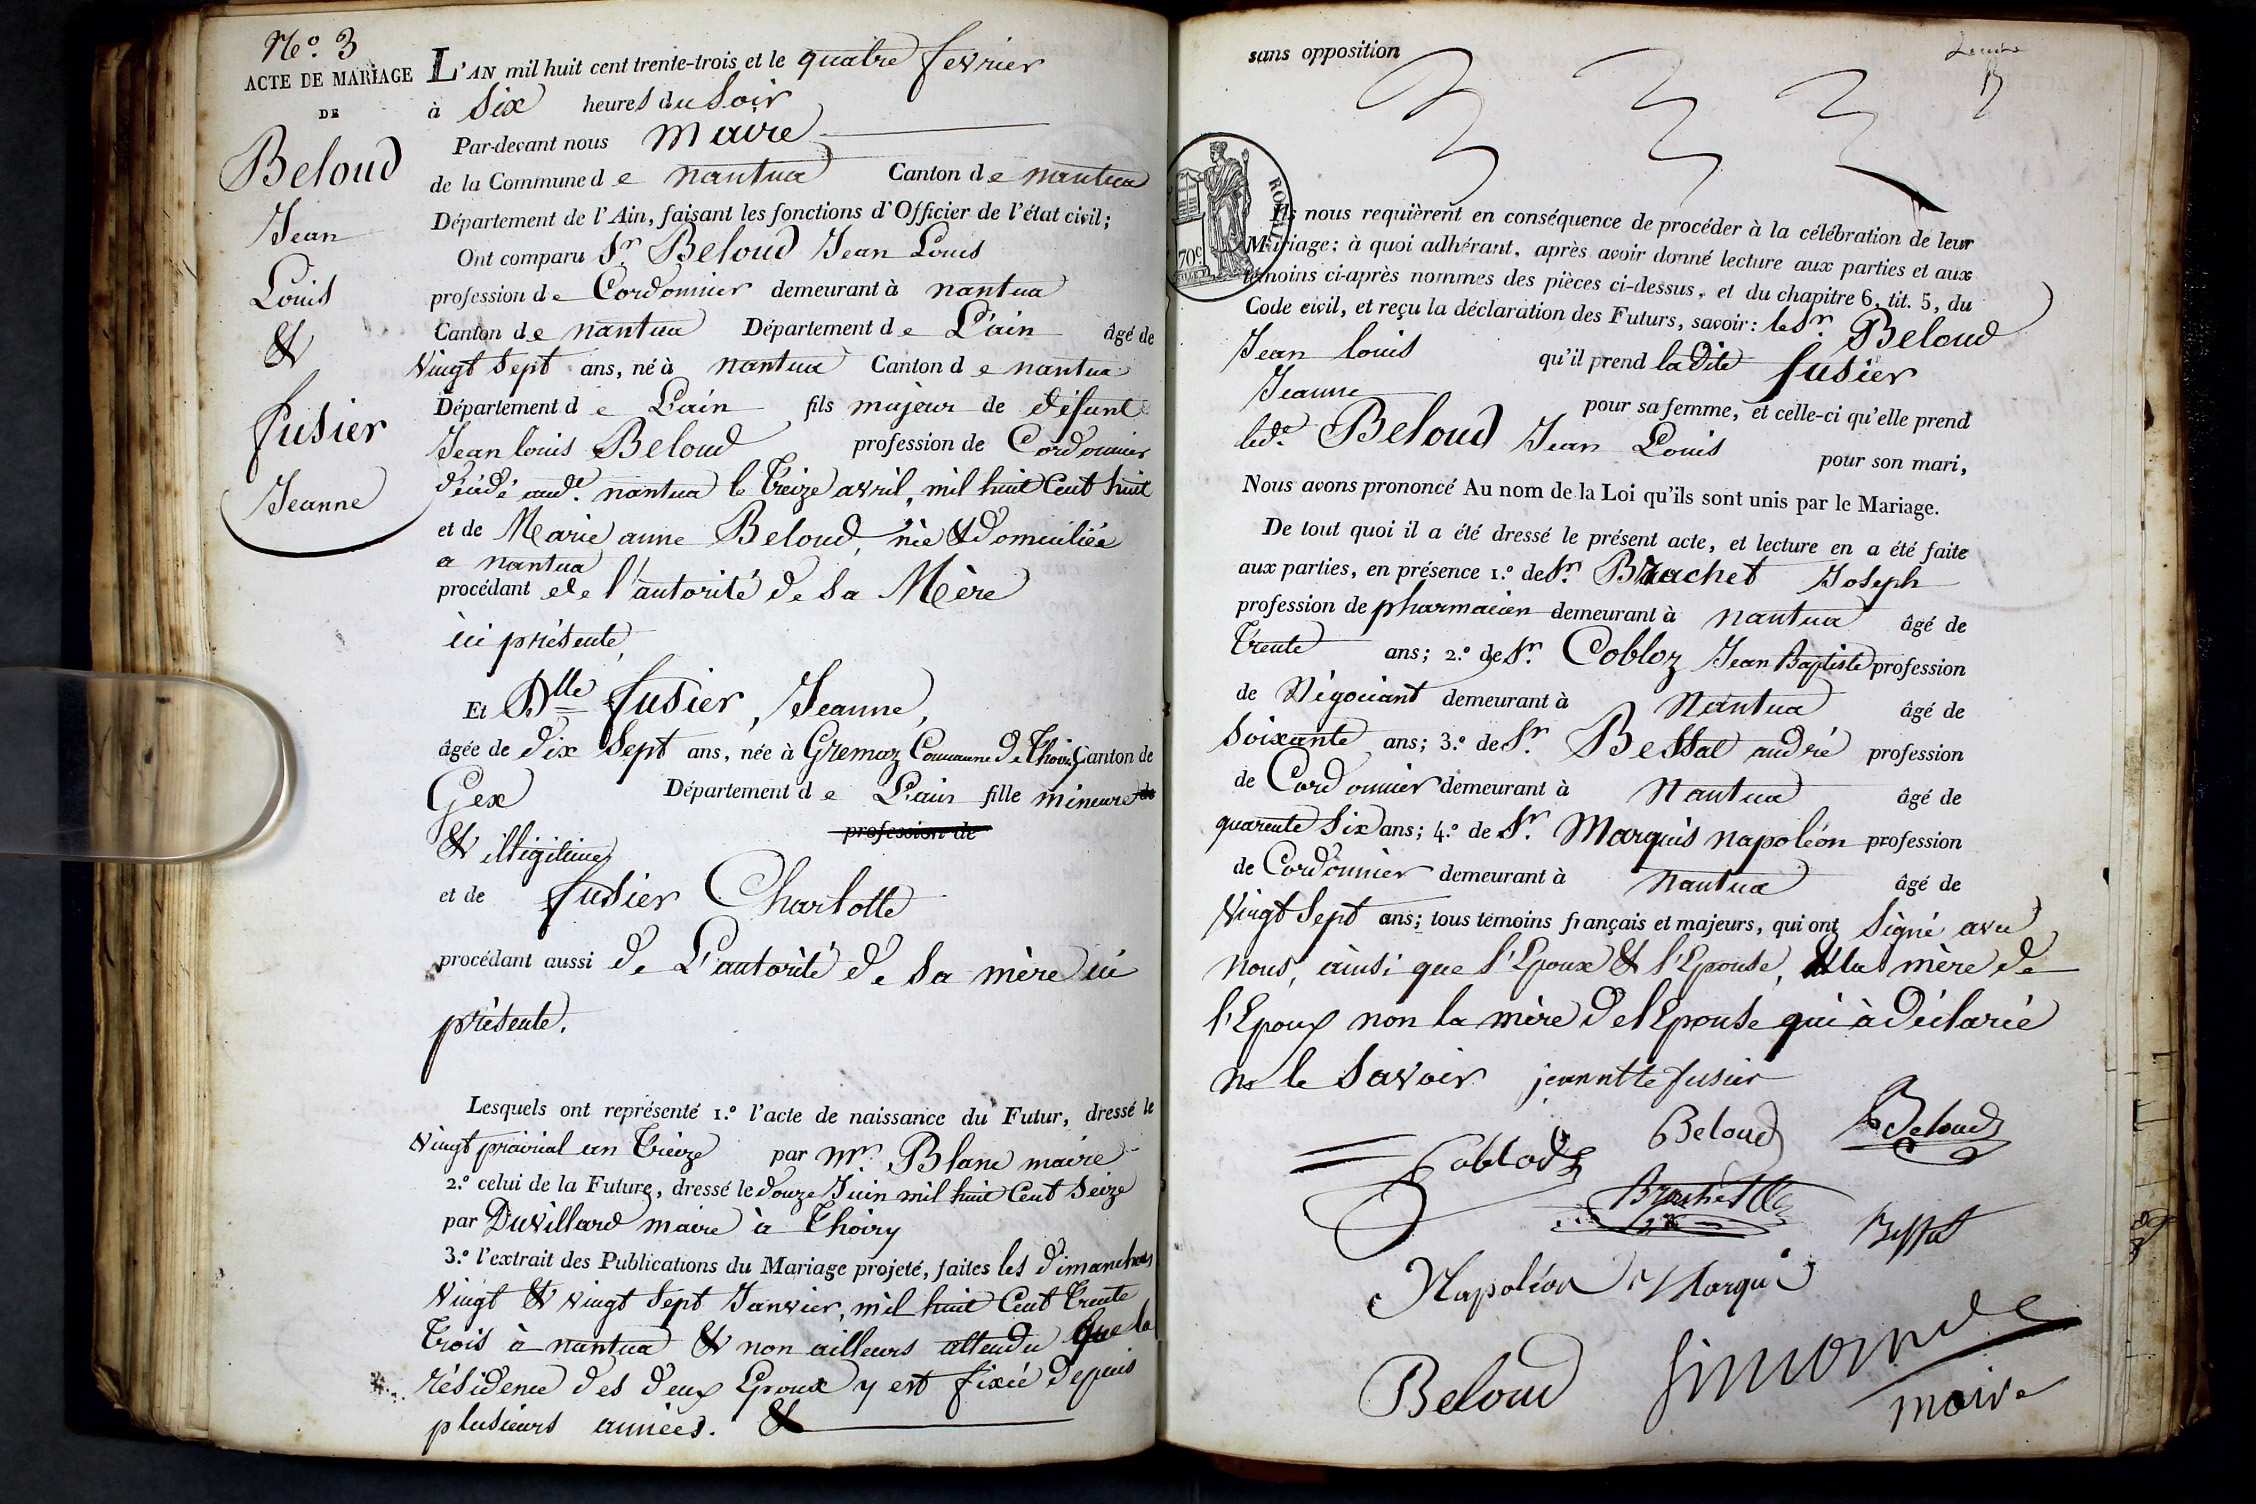 N.o 3
ACTE DE MARIAGE
DE
Beloud
Jean
Louis
&
fusier
Jeanne
L'AN mil huit cent trente-trois et le quatre fevrier
à Six heures du Soir
Par-devant nous Maire
de la Commune de nantua Canton de nantua
Département de l'Ain, faisant les fonctions d'Officier de l'état civil;
Ont comparu Sr. Beloud Jean Louis
profession de Cordonnier demeurant à nantua
Canton de nantua Département de L'ain âgé de
Vingt Sept ans, né à nantua Canton de nantua
Département de L'ain fils majeur de défunt
Jean louis Beloud profession de Cordonnier
décédé aud.t nantua le treize avril, mil huit Cent huit
et de Marie anne Beloud, née & domiciliée
a nantua
procédant de l'autorité de Sa Mère
ici présente,
Et Dlle fusier, Jeanne,
âgée de dix Sept ans, née à Gremaz Commune de Thoiry Canton de
Gex Département de L'ain fille mineure de
profession de
& illigitime
et de fusier Charlotte
procédant aussi de L'autorité de Sa mère ici
présente.
Lesquels ont représenté 1.o l'acte de naissance du Futur, dressé le
Vingt prairial an treize par Mr. Blanc maire
2.o celui de la Future, dressé le douze Juin mil huit Cent Seize
par Duvillard maire à Thoiry
3.o l'extrait des Publications du Mariage projeté, faites les dimanches
Vingt & vingt Sept Janvier, mil huit Cent trente
trois à nantua & non ailleurs attendu que la
résidence des deux Epoux y est fixée depuis
plusieurs années. &
sans opposition
ROYAL
70c
Ils nous requièrent en conséquence de procéder à la célébration de leur
Mariage; à quoi adhérant, après avoir donné lecture aux parties et aux
témoins ci-après nommes des pièces ci-dessus, et du chapitre 6, tit. 5, du
Code civil, et reçu la déclaration des Futurs, savoir: le Sr. Beloud
Jean louis qu'il prend la dite fusier
Jeanne pour sa femme, et celle-ci qu'elle prend
led.t Beloud Jean Louis pour son mari,
Nous avons prononcé Au nom de la Loi qu'ils sont unis par le Mariage.
De tout quoi il a été dressé le présent acte, et lecture en a été faite
aux parties, en présence 1.o de Sr. Brachet Joseph
profession de pharmacien demeurant à nantua âgé de
trente ans; 2.o de Sr. Cobloz Jean Baptiste profession
de Négociant demeurant à Nantua âgé de
Soixante ans; 3.o de Sr. Bessat andré profession
de Cordonnier demeurant à Nantua âgé de
quarente Six ans; 4.o de Sr. Marquis napoléon profession
de Cordonnier demeurant à Nantua âgé de
Vingt Sept ans; tous témoins français et majeurs, qui ont Signé avec
Nous, ainsi que l'Epoux & l'Epouse, & la mère de
l'Epoux non la mère de l'Epouse qui à déclarée
ne le Savoir jeannette fusier
Beloud Beloud
Coblod
Brachet
Bessat
Napoléon Marquis
Beloud Simonde
maire